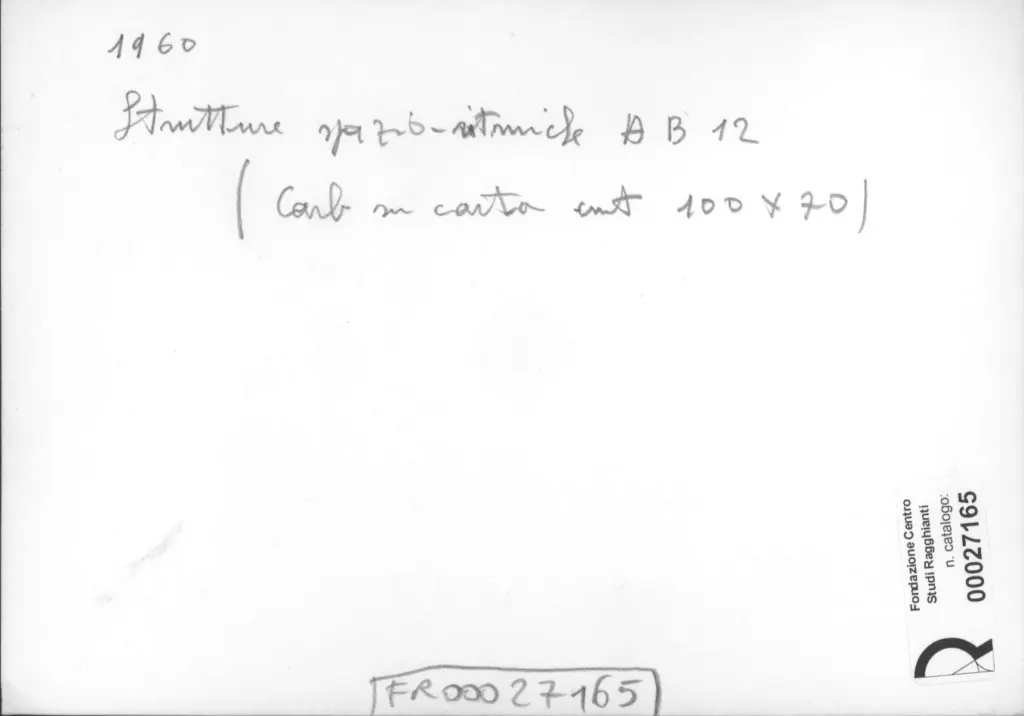 1960
Strutture spazio-ritmiche A B 12
( Carb su carta cmt 100 x 70 )
Fondazione Centro
Studi Ragghianti
n. catalogo:
00027165
FR00027165